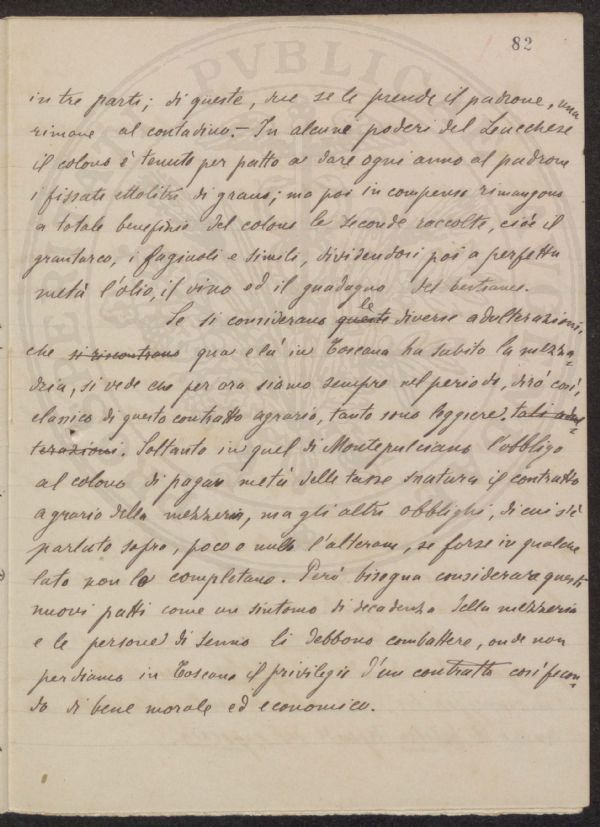 82
in tre parti; di queste, due se le prende il padrone, una
rimane al contadino. - In alcune poderi del Lucchese
il colono è tenuto per patto a dare ogni anno al padrone
i fissati ettolitri di grano; ma poi in compenso rimangono
a totale benefizio del colono le seconde raccolte, cioè il
granturco, i fagiuoli e simili, dividendosi poi a perfetta
metà l'olio, il vino ed il guadagno del bestiame.
Se si considerano queste le diverse adulterazioni,
che si riscontrano qua e là in Toscana ha subito la mezza-
dria, si vede che per ora siamo sempre nel periodo, dirò così,
classico di questo contratto agrario, tanto sono leggiere. tali adul-
terazioni. Soltanto in quel di Montepulciano l'obbligo
al colono di pagare metà delle tasse snatura il contratto
agrario della mezzeria, ma gli altri obblighi, di cui s'è
parlato sopra, poco o nulla l'alterano, se forse in qualche
lato non lo completano. Però bisogna considerare questi
nuovi patti come un sintomo di decadenza della mezzeria
e le persone di senno li debbono combattere, onde non
perdiamo in Toscana il privilegio d'un contratto così fecon-
do di bene morale ed economico.